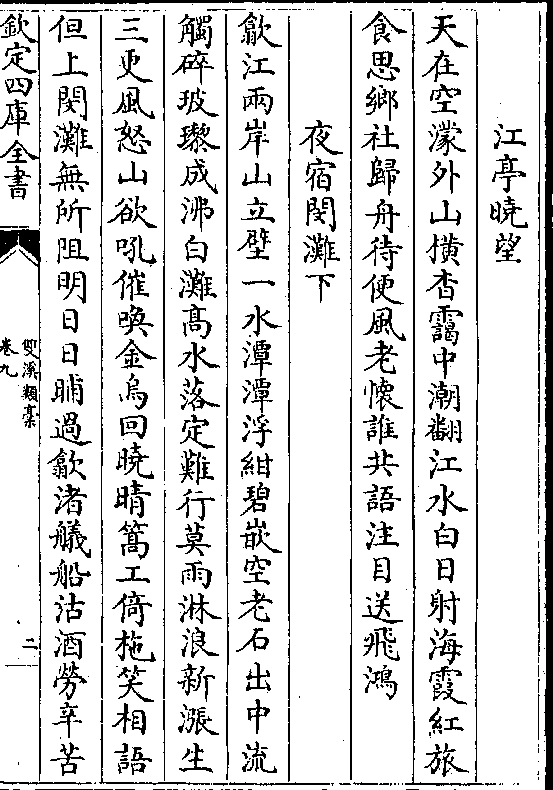 江亭曉望
天在空濛外山横杳靄中潮翻江水白日射海霞紅旅
食思鄉社歸舟待便風老懷誰共語注目送飛鴻
夜宿閔灘下
歙江兩岸山立壁一水潭潭浮紺碧嵌空老石出中流
觸碎玻瓈成沸白灘髙水落定難行莫雨淋浪新漲生
三更風怒山欲吼催喚金烏回曉晴篙工倚柂笑相語
但上閔灘無所阻明日日晡過歙渚艤船沽酒勞辛苦
欽定四庫全書
雙溪類稾
卷九
二